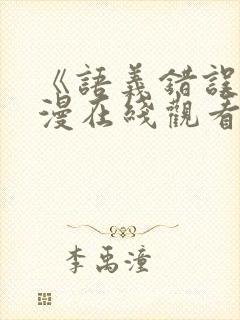 《語義錯誤
漫在綫觀看
李禹潼